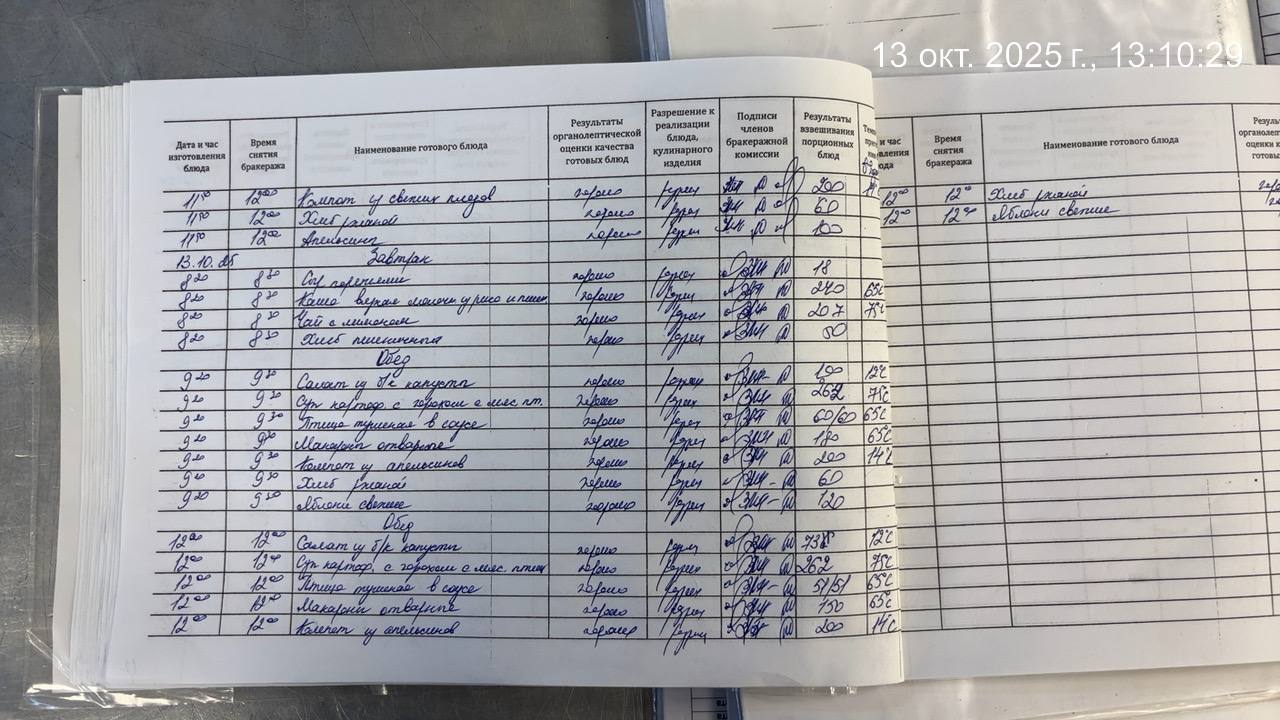 13 окт. 2025 г., 13:10:29
Дата и час изготовления блюда Время снятия бракеража Наименование готового блюда Результаты органолептической оценки качества готовых блюд Разрешение к реализации блюда, кулинарного изделия Подписи членов бракеражной комиссии Результаты взвешивания порционных блюд
11⁵⁰ 12⁰⁰ Компот из свежих плодов хорошо разреш 200
11⁵⁰ 12⁰⁰ Хлеб ржаной хорошо разреш 60
11⁵⁰ 12⁰⁰ Апельсины хорошо разреш 100
13.10.25 Завтрак
8²⁰ 8³⁰ Сыр порциями хорошо разреш 18
8²⁰ 8³⁰ Каша молочн из риса и пшен хорошо разреш 240 65С
8²⁰ 8³⁰ Чай с лимоном хорошо разреш 207 75С
8²⁰ 8³⁰ Хлеб пшеничный хорошо разреш 50
Обед
9²⁰ 9³⁰ Салат из б/к капусты хорошо разреш 100 12С
9²⁰ 9³⁰ Суп картоф. с горохом с мяс. пт. хорошо разреш 262 75С
9²⁰ 9³⁰ Птица тушеная в соусе хорошо разреш 60/60 65С
9²⁰ 9³⁰ Макароны отварные хорошо разреш 180 65С
9²⁰ 9³⁰ Компот из апельсинов хорошо разреш 200 14С
9²⁰ 9³⁰ Хлеб ржаной хорошо разреш 60
9²⁰ 9³⁰ Яблоки свежие хорошо разреш 120
Обед
12⁰⁰ 12⁰⁰ Салат из б/к капусты хорошо разреш 12С
12⁰⁰ 12⁰⁰ Суп картоф. с горохом с мяс. птиц хорошо разреш 262 75С
12⁰⁰ 12⁰⁰ Птица тушеная в соусе хорошо разреш 51/51 65С
12⁰⁰ 12⁰⁰ Макароны отварные хорошо разреш 150 65С
12⁰⁰ 12⁰⁰ Компот из апельсинов хорошо разреш 200 14С
Время снятия бракеража Наименование готового блюда
12⁰⁰ 12⁰⁰ Хлеб ржаной
12⁰⁰ 12⁰⁰ Яблоки свежие